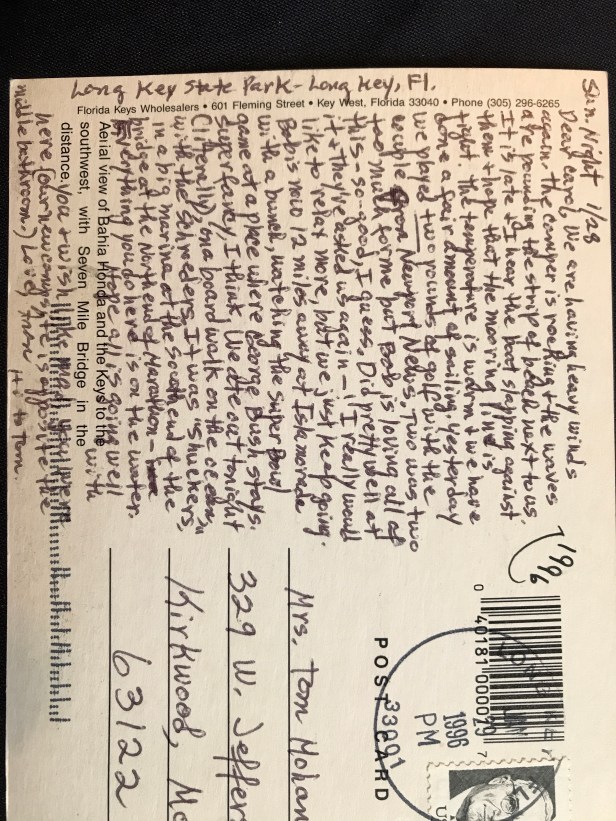 Long Key State Park - Long Key, Fl.
Florida Keys Wholesalers • 601 Fleming Street • Key West, Florida 33040 • Phone (305) 296-6265
Sun. Night 1/28
Dear Carol, We are having heavy winds
again - the camper is rocking & the waves
are pounding the strip of beach next to us.
It is late & I hear the boat slapping against
them & hope that the mooring line is
tight. The temperature is warm & we have
done a fair amount of sailing. Yesterday
we played two rounds of golf with the
couple from Newport News, Two was two
too much for me but Bob is loving all of
this - so - good, I guess. Did pretty well at
it & they've asked us again - I really would
like to relax more, but we just keep going.
Bob is now 12 miles away at Islamorada
with a bunch, watching the Super Bowl
game at a place where George Bush stays.
Super fancy, I think. We ate out tonight
(literally), on a boardwalk on the ocean,
with the Schroeders. It was "Shuckers"
in a big marina at the South end of the
bridge at the North end of Marathon -
Everything you do here is on the water.
Hope all is going well with
Aerial view of Bahia Honda and the Keys to the
southwest, with Seven Mile Bridge in the
distance.
you & wish
here (our new campsite is opposite the
middle bathroom.) Love,
to Tom.
1996
0 40181 00002 7
1996
PM
33001
POSTCARD
Mrs. Tom Mohan
329 W. Jeffer
Kirkwood, Mo
63122